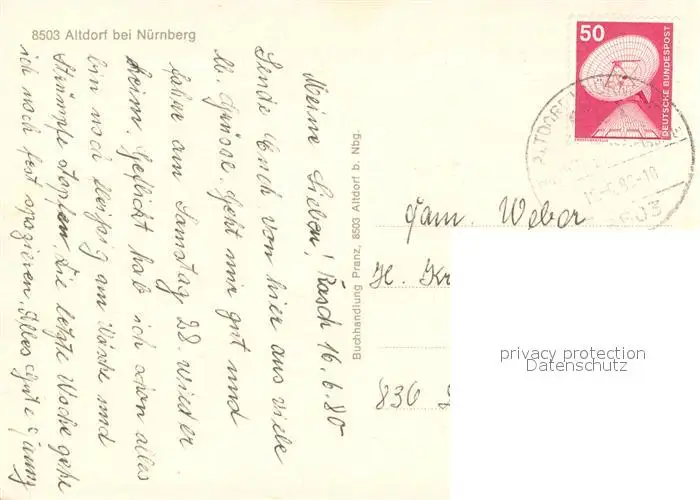 8503 Altdorf bei Nürnberg
Meine Lieben! Rasch 16.6.80
Sende Euch von hier aus viele
lb. Grüsse. Geht mir gut und
fahre am Samstag 28. wieder
heim. Geflickt hab ich schon alles
bin noch fleißig am Wäsche und
Strümpfe stopfen. Die letzte Woche gehe
ich noch fest spazieren. Alles Gute
Buchhandlung Pranz, 8503 Altdorf b. Nbg.
50
DEUTSCHE BUNDESPOST
ALTDORF
8503
Fam. Weber
H. Kr
836
privacy protection
Datenschutz